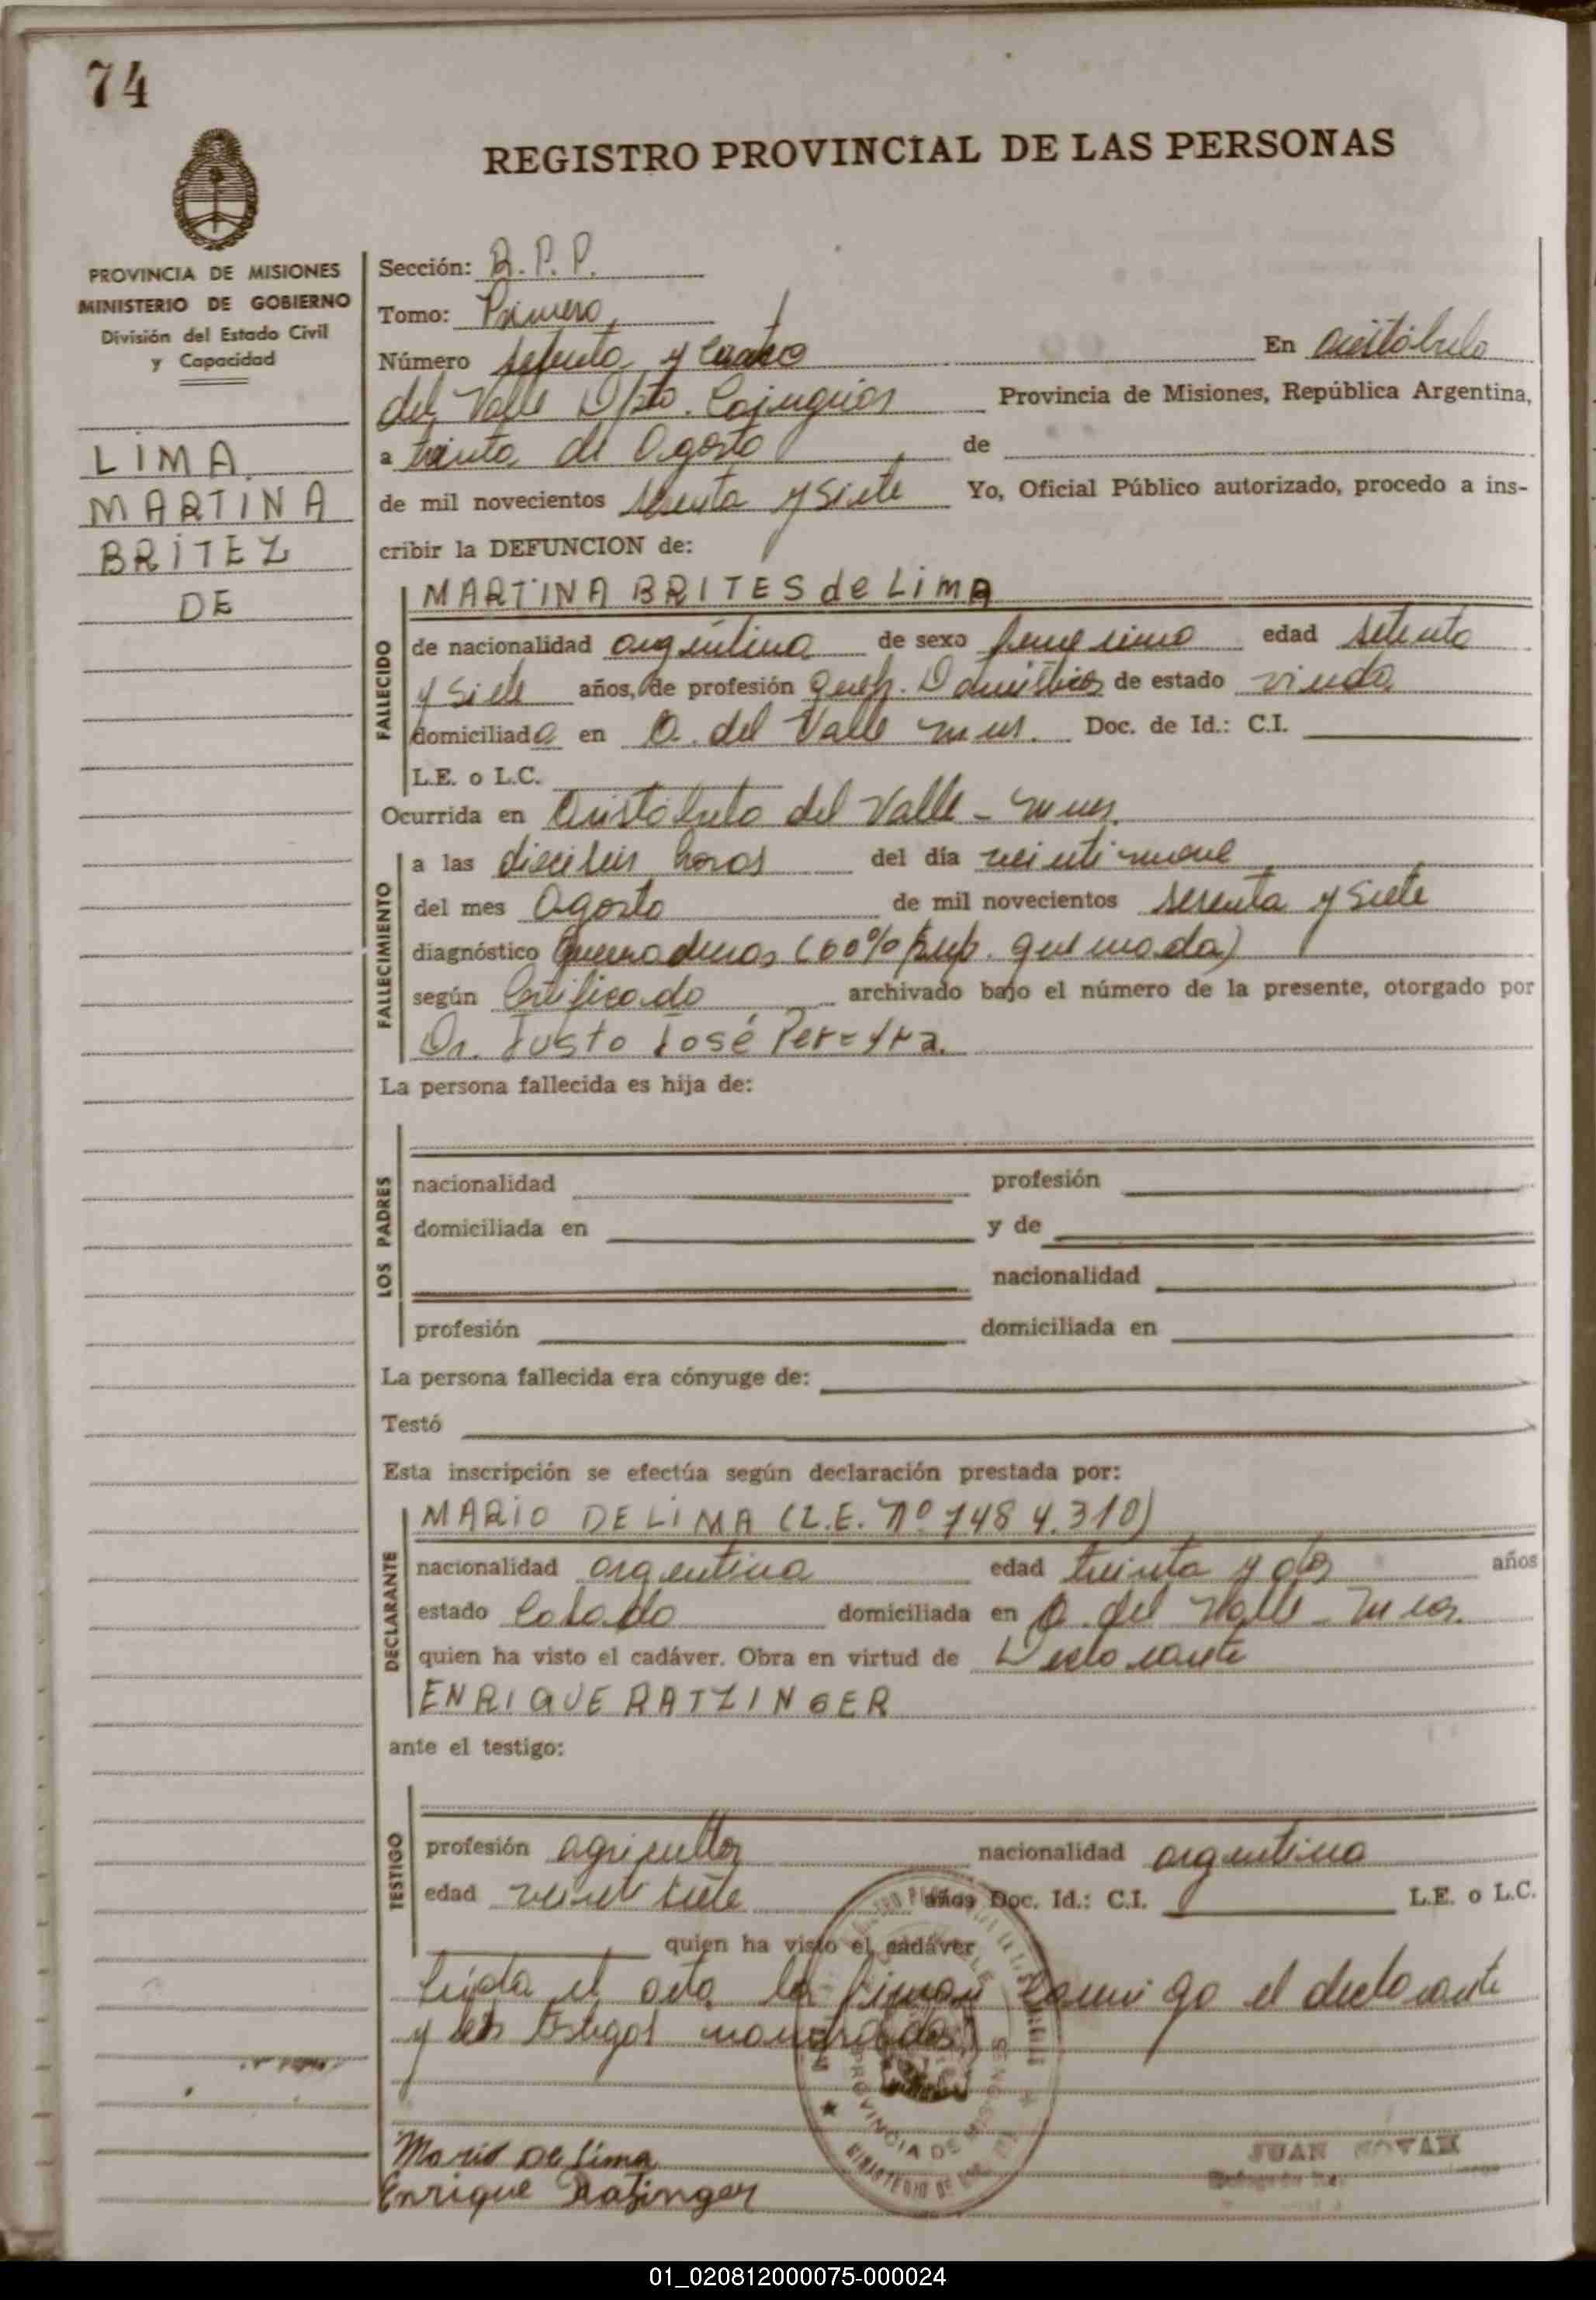 74
REGISTRO PROVINCIAL DE LAS PERSONAS
PROVINCIA DE MISIONES
MINISTERIO DE GOBIERNO
División del Estado Civil
y Capacidad
LIMA
MARTINA
BRITEZ
DE
Sección: R.P.P.
Tomo: Primero
Número setenta y cuatro En Aristóbulo
del Valle Dpto. Cainguás Provincia de Misiones, República Argentina,
a treinta de Agosto de
de mil novecientos sesenta y siete Yo, Oficial Público autorizado, procedo a ins-
cribir la DEFUNCION de:
FALLECIDO
MARTINA BRITES de LIMA
de nacionalidad argentina de sexo femenino edad setenta
y siete años, de profesión queh. Domésticos de estado viuda
domiciliada en A. del Valle Mnes. Doc. de Id.: C.I.
L.E. o L.C.
Ocurrida en Aristóbulo del Valle - Mnes.
FALLECIMIENTO
a las dieciseis horas del día veintinueve
del mes Agosto de mil novecientos sesenta y siete
diagnóstico Quemaduras (60% sup. quemada)
según Certificado archivado bajo el número de la presente, otorgado por
Dr. Justo José Pereyra.
La persona fallecida es hija de:
LOS PADRES
nacionalidad profesión
domiciliada en y de
nacionalidad
profesión domiciliada en
La persona fallecida era cónyuge de:
Testó
Esta inscripción se efectúa según declaración prestada por:
DECLARANTE
MARIO DE LIMA (L.E. Nº 7484.310)
nacionalidad argentina edad treinta y dos años
estado Casado domiciliada en A. del Valle - Mnes.
quien ha visto el cadáver. Obra en virtud de Declarante
ENRIQUE RATZINGER
ante el testigo:
TESTIGO
profesión agricultor nacionalidad argentina
edad veintisiete años Doc. Id.: C.I. L.E. o L.C.
quien ha visto el cadáver
Leída el acta la firman conmigo el declarante
y los testigos nombrados
PROVINCIA DE
MINISTERIO DE
Mario De Lima
Enrique Ratzinger
JUAN NOVAK
01_020812000075-000024